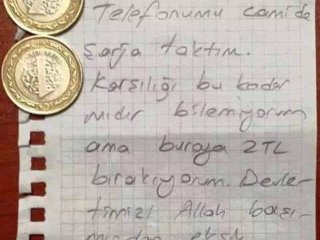 Telefonumu camide
şarja taktım.
Karşılığı bu kadar
mıdır bilemiyorum
ama buraya 2TL
bırakıyorum. Devle-
timizi Allah başı-
mızdan eksik